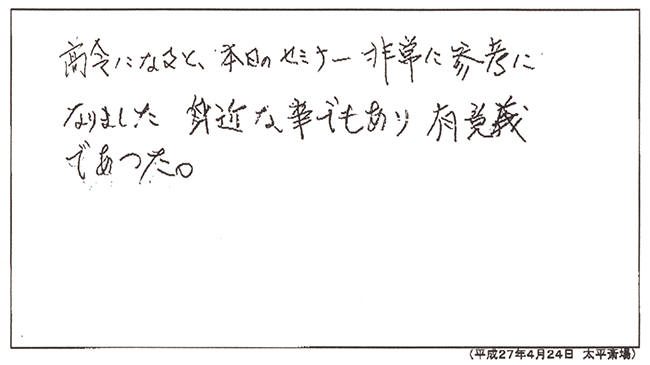 高令になると、本日のセミナー非常に参考に
なりました 身近な事でもあり 有意義
であった。
(平成27年4月24日 太平斎場)